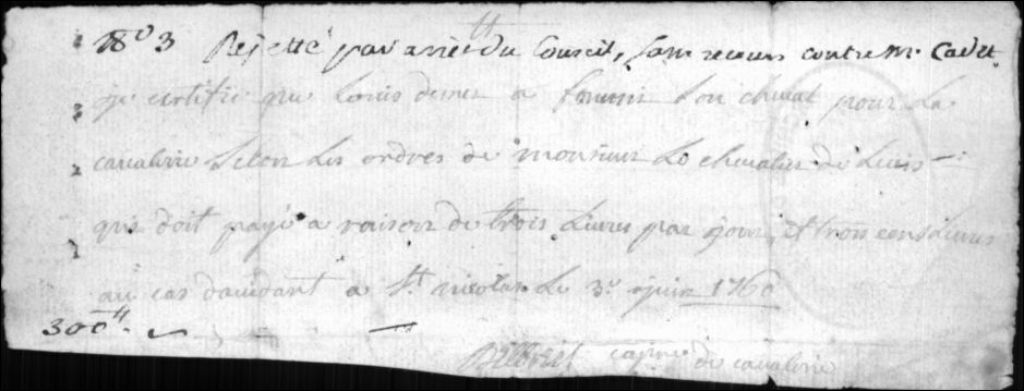 1803 Rejetté par arrêt du Conseil, sans recours contre Mr. Cadet.
je certifie que Louis a fourni son cheval pour la
cavalerie selon les ordres de monsieur le chevalier de Levis
qui doit payé a raison de trois livres par jour, et trois cens livres
au cas daccidant a St. nicolas le 3e. juin 1760
300tt.
capne de cavalerie